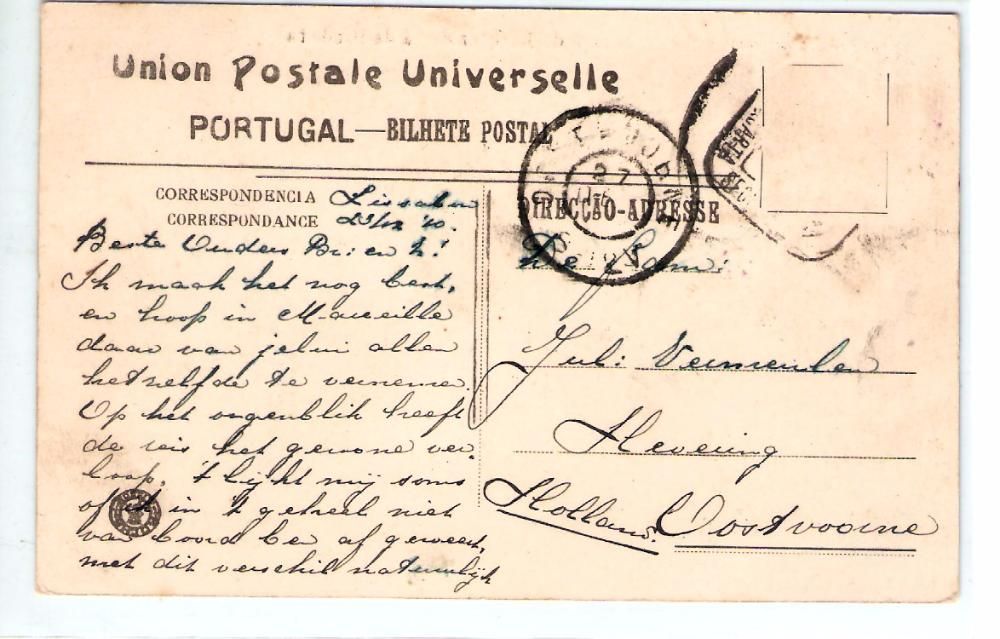 Union Postale Universelle
PORTUGAL—BILHETE POSTAL
CORRESPONDENCIA Lissabon
CORRESPONDANCE
DIRECÇÃO-ADRESSE
Beste Ouders
Ik maak het nog best,
en hoop in Marseille
daar van jelui allen
hetzelfde te vernemen.
Op het oogenblik heeft
de reis het gewone ver
loop. 't lijkt mij soms
of ik in 't geheel niet
van boord ben af geweest,
met dit verschil natuurlijk
De Fam:
Jul: Vermeulen
Hevering
Holland. Oostvoorne